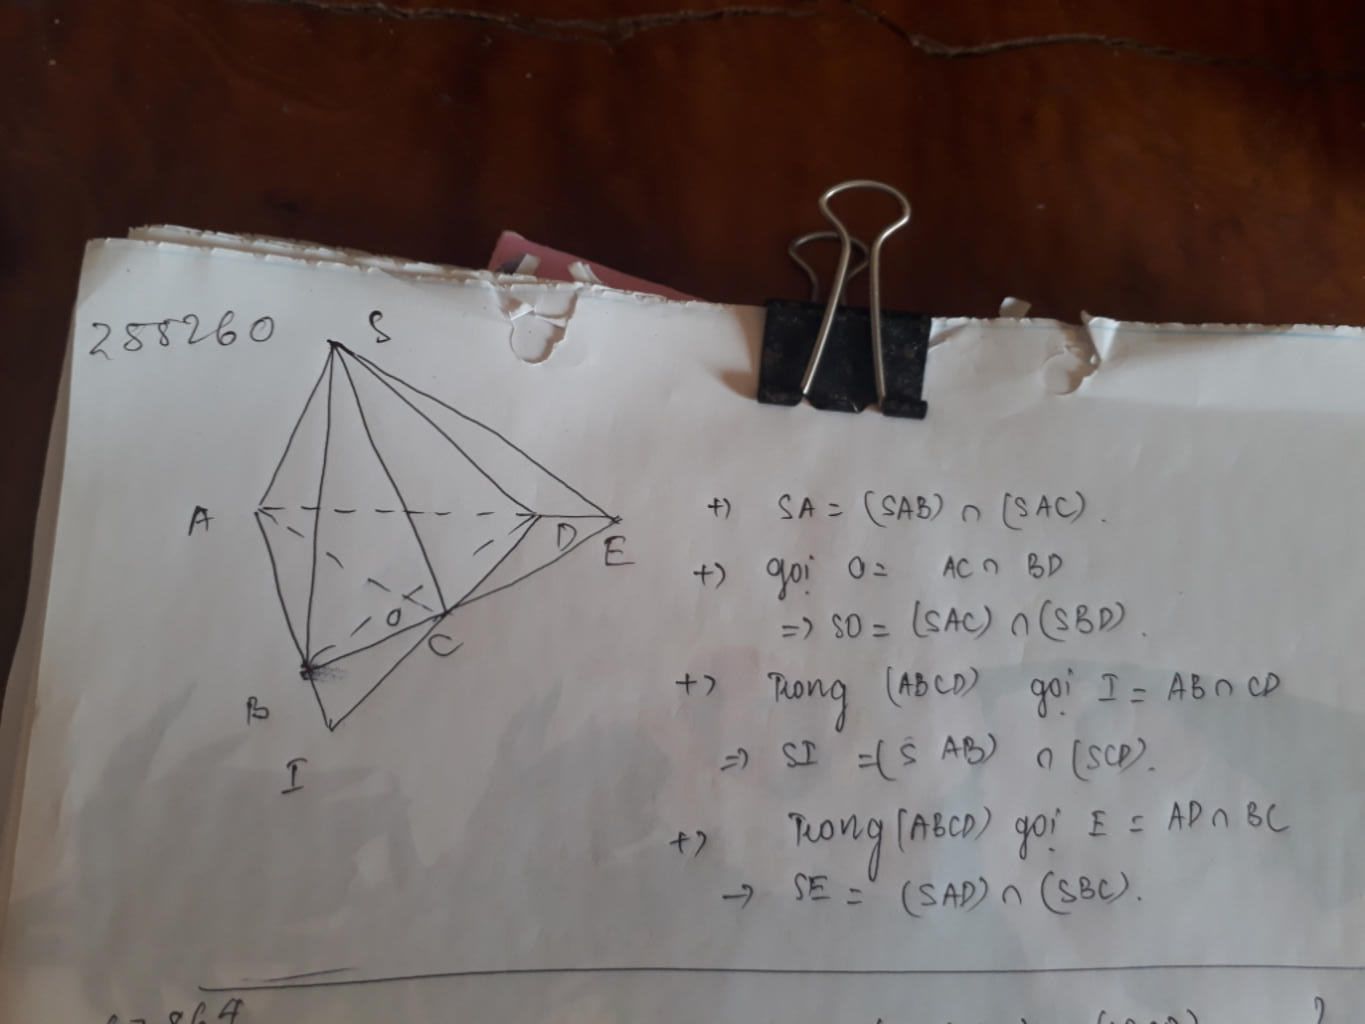 288260
S
A
D
E
O
C
B
I
+) SA = (SAB) ∩ (SAC).
+) gọi O = AC ∩ BD
=> SO = (SAC) ∩ (SBD).
+) Trong (ABCD) gọi I = AB ∩ CD
=> SI = (SAB) ∩ (SCD).
+) Trong (ABCD) gọi E = AD ∩ BC
-> SE = (SAD) ∩ (SBC).